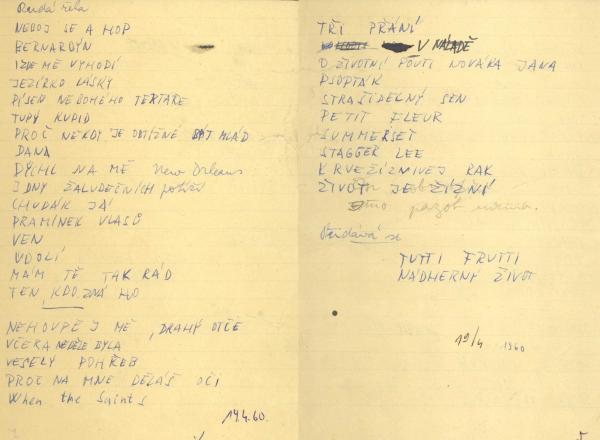 NEBOJ SE A HOP
BERNARDÝN
MĚ VYHODÍ
JEZÍRKO LÁSKY
PÍSEŇ NEDOMÉHO
TUPÝ KUPID
PROČ JE MLÁD
DANA
DÝCHL NA MĚ New Orleans
ŽALUDEČNÍCH
CHUDÁK JÁ
PRAMÍNEK VLASŮ
VEN
ÚDOLÍ
MÁM TĚ TAK RÁD
TEN, KDO ZNÁ HO
NEHOUPEJ MĚ, DRAHÝ OTČE
VČERA NEDĚLE BYLA
VESELÝ POHŘEB
PROČ NA MNE DĚLÁŠ OČI
When the Saints
19.4.60.
TŘI PŘÁNÍ
V NÁLADĚ
O ŽIVOTNÍ POUTI NOVÁKA JANA
PSOPTÁK
STRAŠIDELNÝ SEN
PETIT FLEUR
SUMMERSET
STAGGER LEE
KRVEŽÍZNIVEJ RAK
ŽIVOT JE
Přidává se
TUTTI FRUTTI
NÁDHERNÝ ŽIVOT
19/4 1960